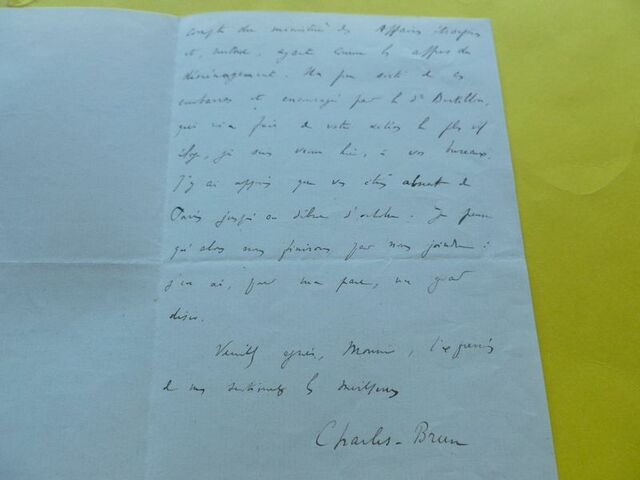 compte du ministère des Affaires étrangères
et, malade, ayant connu les affres du
déménagement. Un peu sorti de ces
embarras et encouragé par le Dr Bertillon,
qui m'a fait de votre action le plus vif
éloge, je suis venu hier, à vos bureaux.
J'y ai appris que vous étiez absent de
Paris jusqu'au début d'octobre. Je pense
qu'alors nous finirons par nous joindre :
j'en ai, pour ma part, un grand
désir.
Veuillez agréer, Monsieur, l'expression
de mes sentiments les meilleurs
Charles-Brun